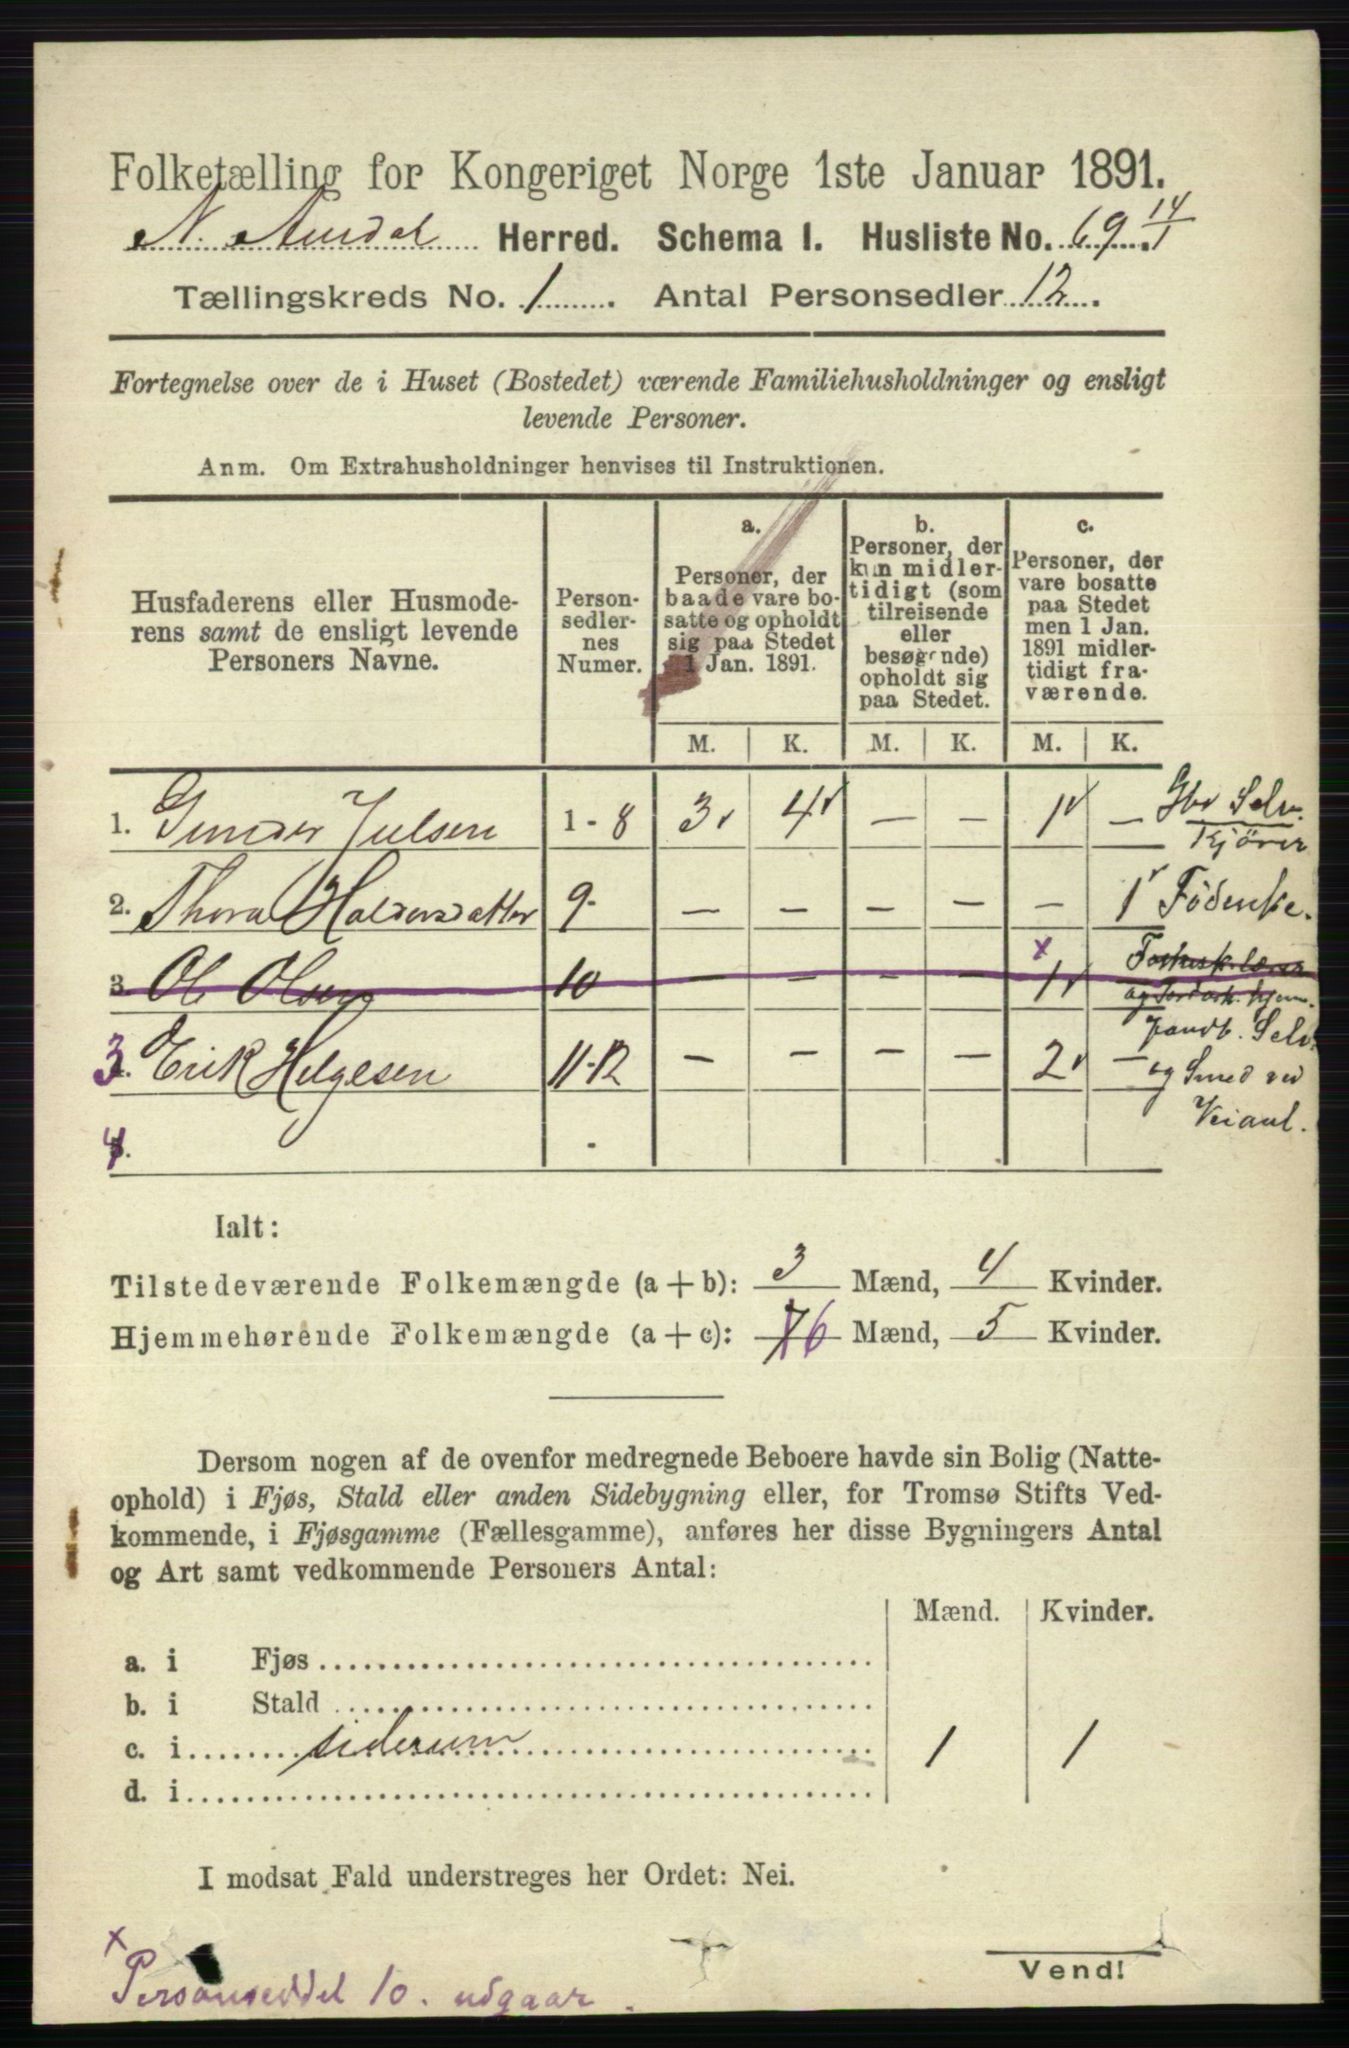 Folketælling for Kongeriget Norge 1ste Januar 1891.
N. Aurdal Herred. Schema 1. Husliste No. 69 14/1.
Tællingskreds No. 1. Antal Personsedler 12.
Fortegnelse over de i Huset (Bostedet) værende Familiehusholdninger og ensligt
levende Personer.
Anm. Om Extrahusholdninger henvises til Instruktionen.
Husfaderens eller Husmode-
rens samt de ensligt levende
Personers Navne.
Person-
sedler-
nes
Numer.
a.
Personer, der
baade vare bo-
satte og opholdt
sig paa Stedet
1 Jan. 1891.
b.
Personer, der
kun midler-
tidigt (som
tilreisende
eller
besøgende)
opholdt sig
paa Stedet.
c.
Personer, der
vare bosatte
paa Stedet
men 1 Jan.
1891 midler-
tidigt fra-
værende.
M. K. M. K. M. K.
1. Gunder Julsen 1 - 8 3 4 — — 1 — Gbr Selv.
Kjörer
2. Thora Haldorsdatter 9- — — — — — 1 Födeuke.
3. Ole Olsen 10 — — — — 1
3. Erik Helgesen 11-12 — — — — 2 — Jandb. Selv.
og Smed ved
Veianl.
4.
Ialt:
Tilstedeværende Folkemængde (a + b): 3 Mænd, 4 Kvinder.
Hjemmehørende Folkemængde (a + c): 7 6 Mænd, 5 Kvinder.
Dersom nogen af de ovenfor medregnede Beboere havde sin Bolig (Natte-
ophold) i Fjøs, Stald eller anden Sidebygning eller, for Tromsø Stifts Ved-
kommende, i Fjøsgamme (Fællesgamme), anføres her disse Bygningers Antal
og Art samt vedkommende Personers Antal:
Mænd. Kvinder.
a. i Fjøs
b. i Stald
c. i siderum 1 1
d. i
I modsat Fald understreges her Ordet: Nei.
Vend!
x Personseddel 10. udgaar.